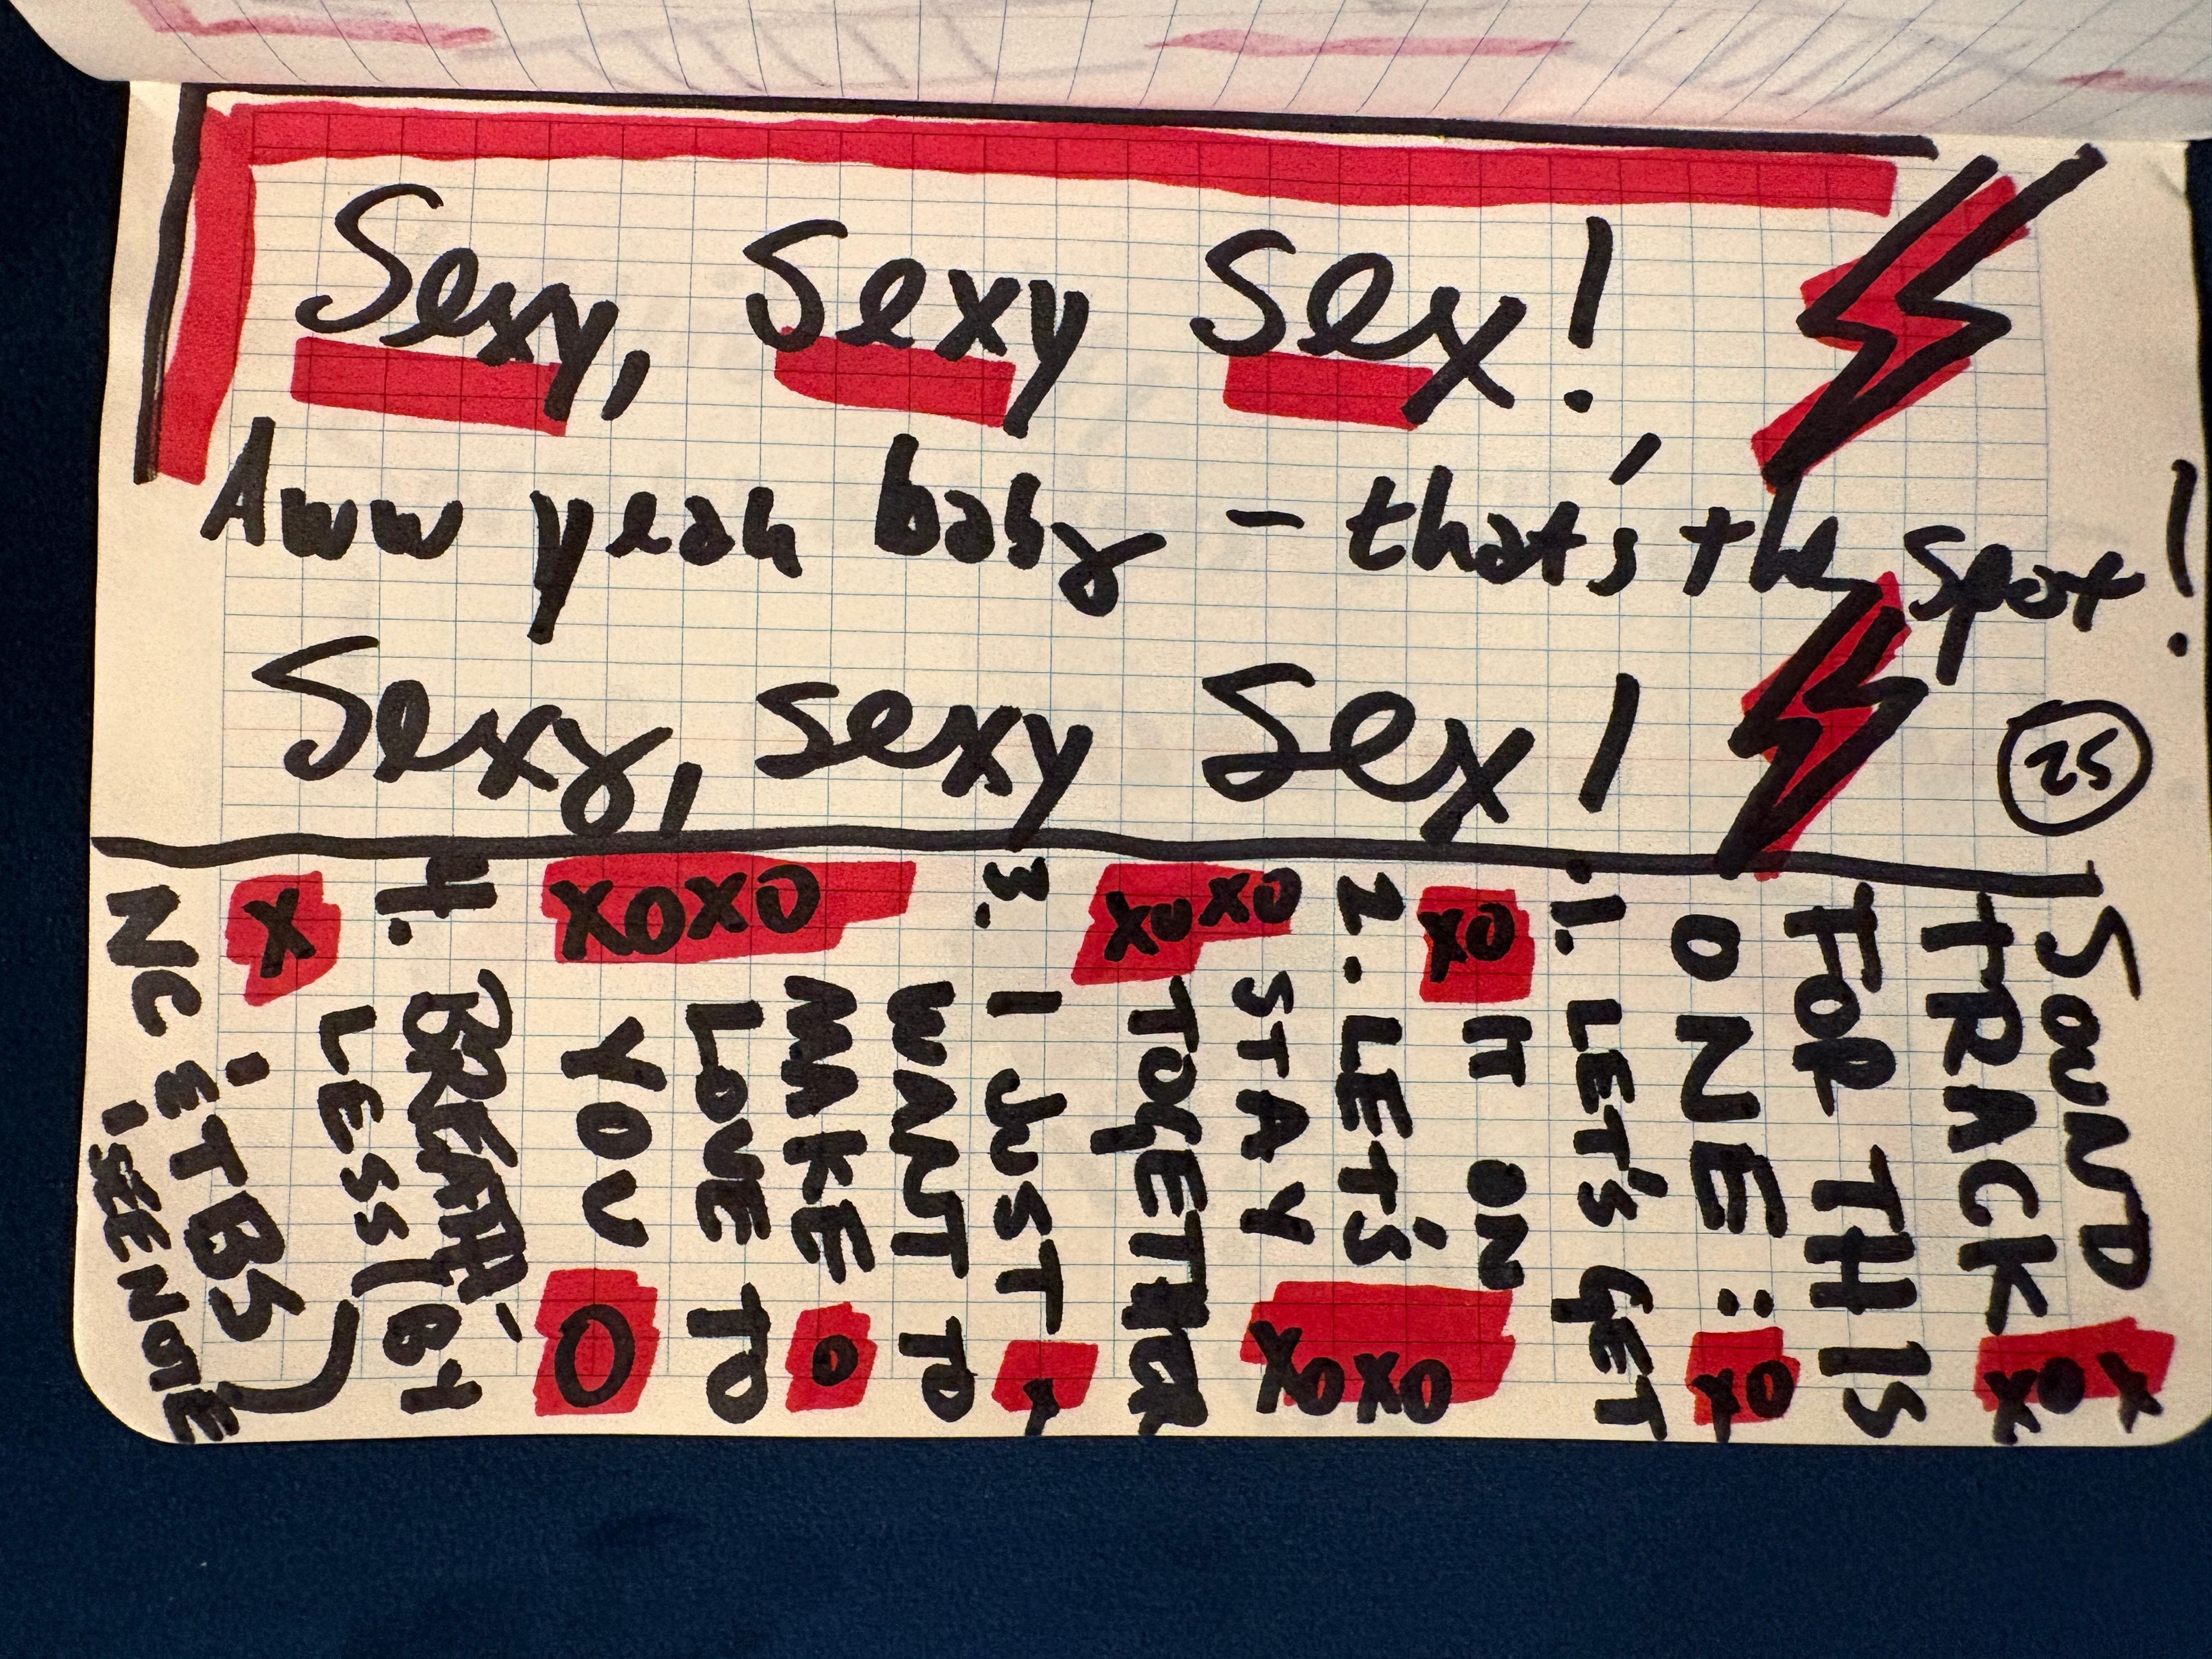 Sexy, Sexy Sex!
Aww yeah baby - that's the spot!
Sexy, sexy Sex!
25
SOUND
TRACK
XOX X
FOR THIS
ONE: XO
1. LET'S GET
XO IT ON
2. LET'S XOXO
XOXO STAY
TOGETHER
3. I JUST
WANT TO
MAKE O
LOVE TO
XOXO YOU O
4. BREATH-
LESS (BY
X
NC : ETBS)
! SEE NOTE